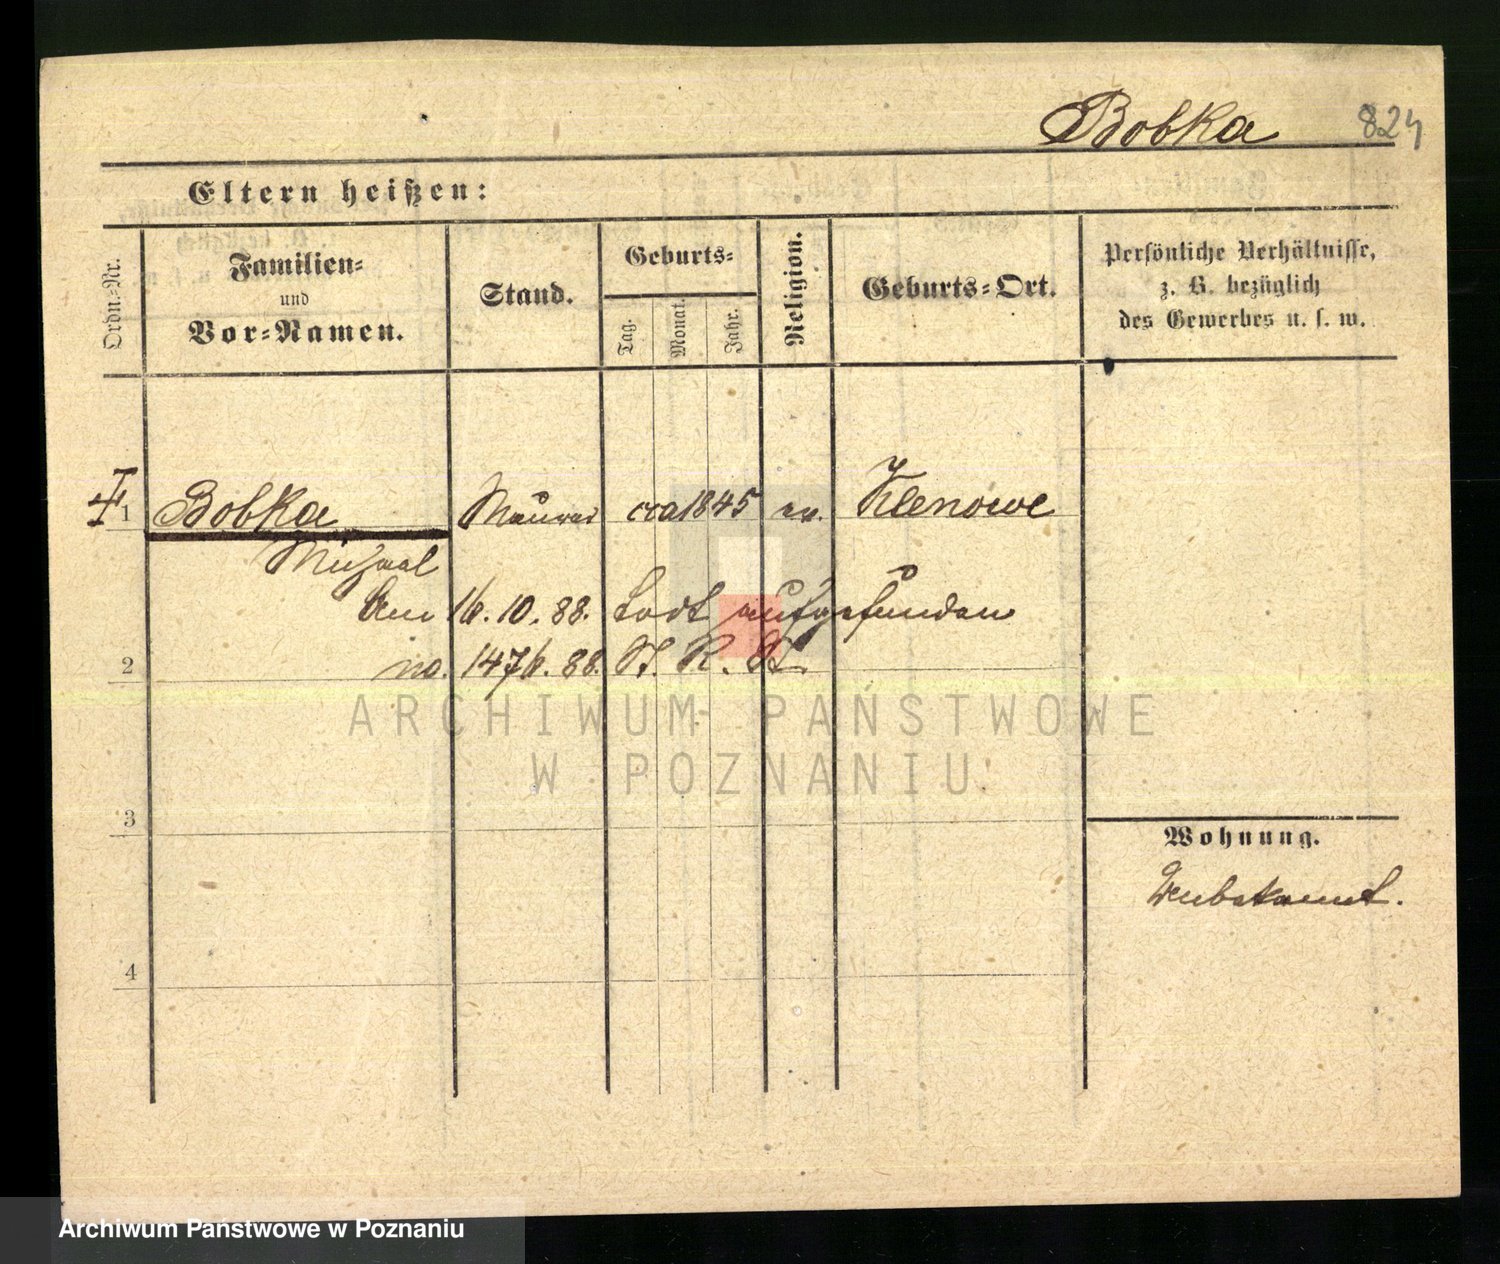 Bobka 824
Eltern heißen:
Ordn.-Nr.
Familien-
und
Vor-Namen.
Stand.
Geburts-
Tag.
Monat.
Jahr.
Religion.
Geburts-Ort.
Persönliche Verhältnisse,
z. B. bezüglich
des Gewerbes u. s. w.
1 Bobka Maurer cca 1845 ev. Klenowe
Michael
Am 16. 10. 88. todt aufgefunden
2 no. 1476. 88. St. R. St.
3
4
Wohnung.
Unbekannt.
ARCHIWUM PAŃSTWOWE
W POZNANIU
Archiwum Państwowe w Poznaniu